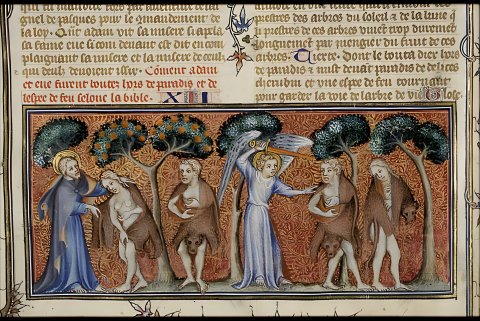 gnel de pasques pour le cōmandement de
la loy. Quāt adam vit sa misere si apla
sa fame eue si com deuant est dit en com
plaignant sa misere et la misere de ceulz
qui deulz deuoient issir. Cōment adam
et eue furent boutez hors de paradis et de
lespee de feu selonc la bible. XIII
prestres des arbres du soleil et de la lune q̄
prestres de ces arbres viuent trop
longuement par mengier du fruit de ces
arbres. Dont le bouta dieu hors
de paradis et mist deuant paradis de delices
cherubin et vne espee de feu tournant
pour garder la voie de larbre de vie Glose.